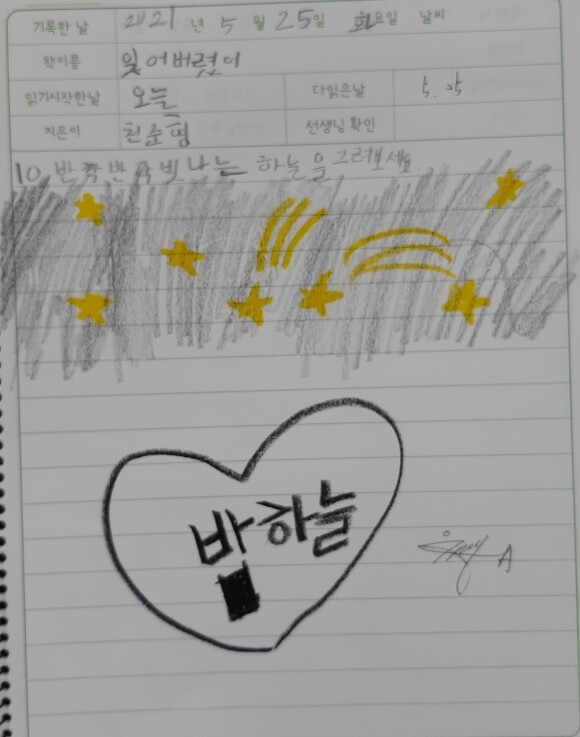 기록한 날 2021 년 5 월 25일 화요일 날씨
책이름 잃어버렸어
읽기시작한날 오늘 다읽은날 5. 25
지은이 천준형 선생님 확인
10 반짝반짝 빛나는 하늘을 그려보세요
밤하늘
A